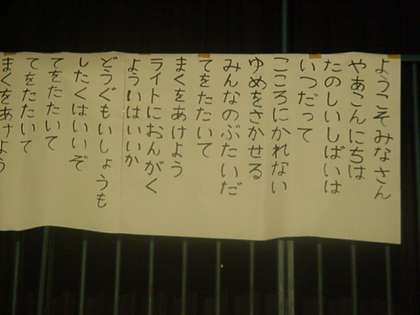 ようこそみなさん
やあこんにちは
たのしいしばいは
いつだって
こころにかれない
ゆめをさかせる
みんなのぶたいだ
てをたたいて
まくをあけよう
ライトにおんがく
よういはいいか
どうぐもいしょうも
したくはいいぞ
てをたたいて
てをたたいて
まくをあけよう